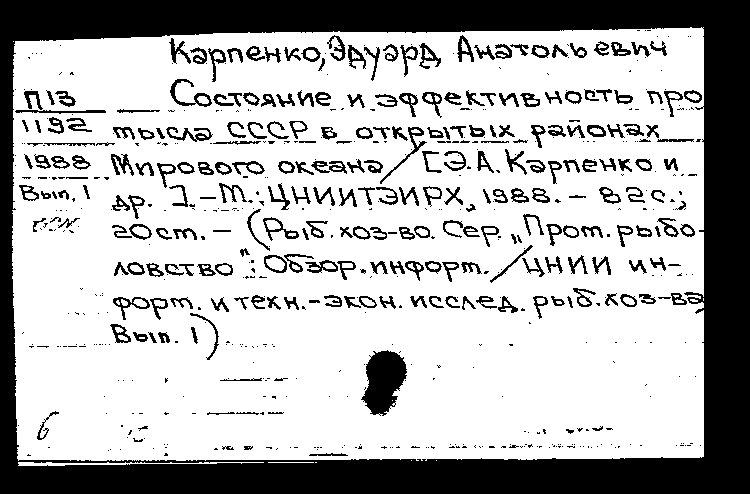 Карпенко, Эдуард Анатольевич
П13
Состояние и эффективность про
1192
мысла СССР в открытых районах
1988
Мирового океана / [Э.А. Карпенко и
Вып. 1
др. ]. – М.: ЦНИИТЭИРХ, 1988. – 82 с.;
20 см. – (Рыб. хоз-во. Сер. „Пром. рыбо-
ловство": Обзор. информ. / ЦНИИ ин-
форм. и техн.-экон. исслед. рыб. хоз-ва;
Вып. 1)
6